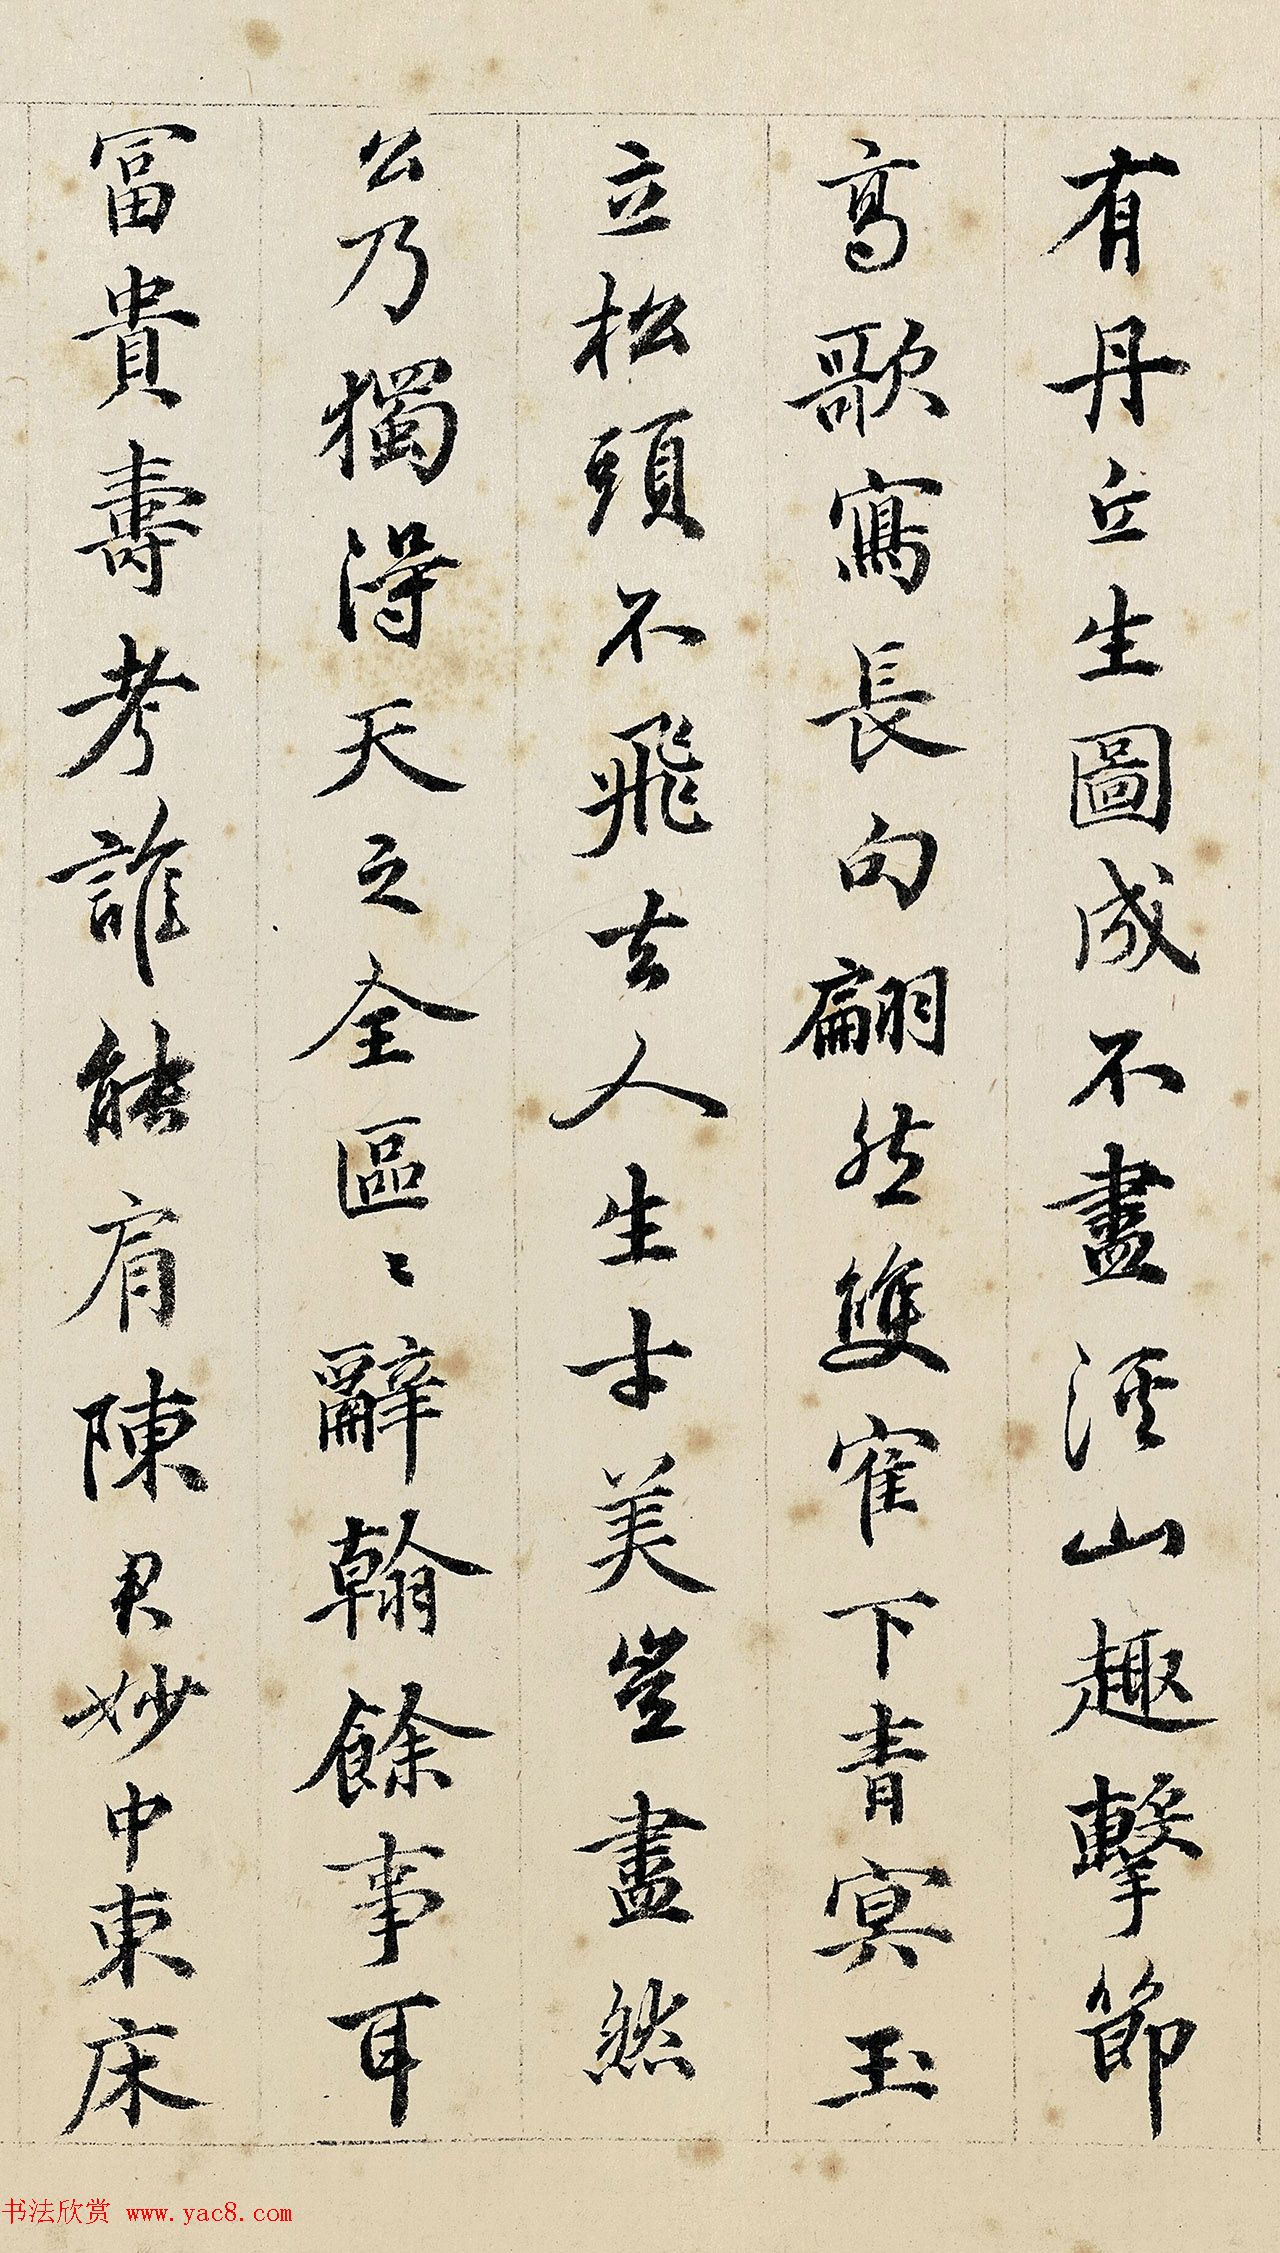 有丹丘生圖成不盡涇山趣擊節
高歌寫長句翩然雙寉下青冥玉
立松頭不飛去人生才美豈盡然
公乃獨得天之全區〻辭翰餘事耳
冨貴壽考誰能肩陳君妙中東床
书法欣赏 www.yac8.com